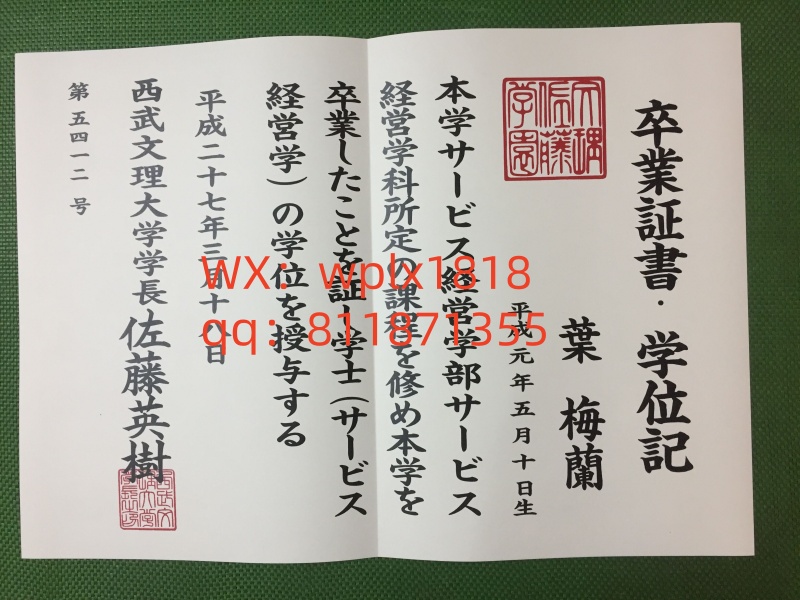 卒業証書・学位記
葉梅蘭
平成元年五月十日生
本学サービス経営学部サービス
経営学科所定の課程を修め本学を
卒業したことを証し学士(サービス
経営学)の学位を授与する
平成二十七年三月十八日
西武文理大学学長 佐藤英樹
第五四一二号
WX: wplx1818
qq: 811871355